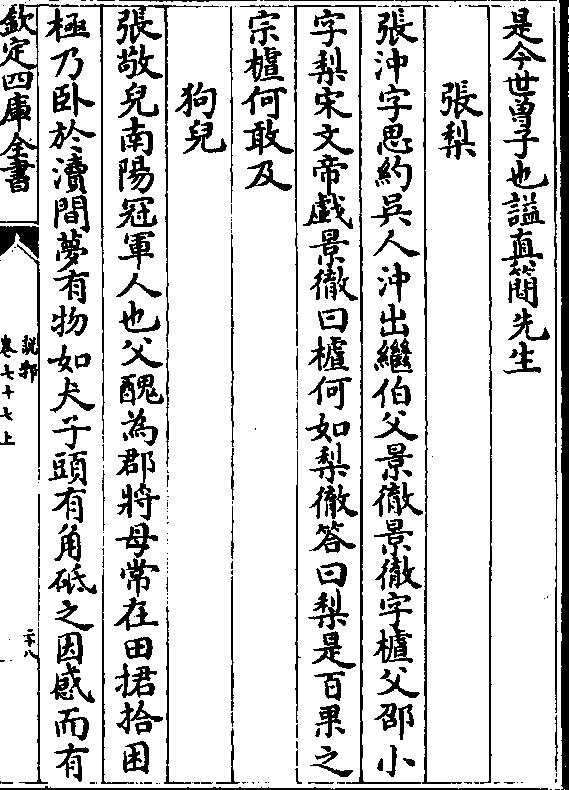 是今世曽子也謚真簡先生
張梨
張沖字思約吳人沖出繼伯父景徹景徹字樝父邵小
字梨宋文帝戱景徹曰樝何如梨徹答曰梨是百果之
宗樝何敢及
狗兒
張敬兒南陽冠軍人也父醜為郡將母常在田捃拾困
極乃卧於瀆間夢有物如犬子頭有角砥之因感而有
欽定四庫全書
說郛
卷七十七上
二十八